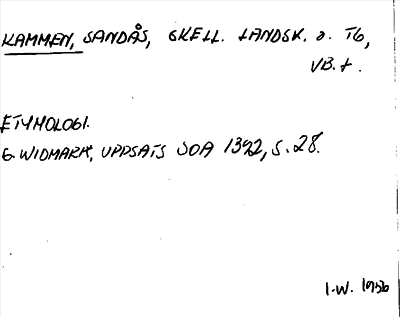 KAMMEN, SANDÅS, SKELL. LANDSK. O. TG,
VB. t.
ETYMOLOGI.
G. WIDMARK, UPPSATS SOA 1392, S. 28.
I.W. 1956